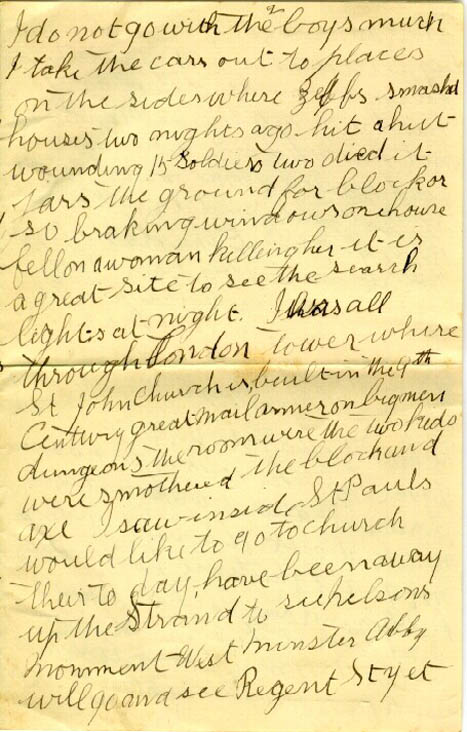 I do not go with the boys much
I take the cars out to places
on the sides where Zebbs smashd
houses two nights ago hit a hut
wounding 15 soldiers two died it
Jars the ground for block or
so braking windows one house
fell on a woman killing her it is
a great site to see the search
lights at night. I was all
through London tower where
St John Church is, built in the 9th
Century great mail armer on big men
dungeons the room were the two kids
were smothered the block and
axe I saw inside St Pauls
would like to go to church
their to day, have been away
up the Strand to
monment West minster Abby
will go and see Regent St yet